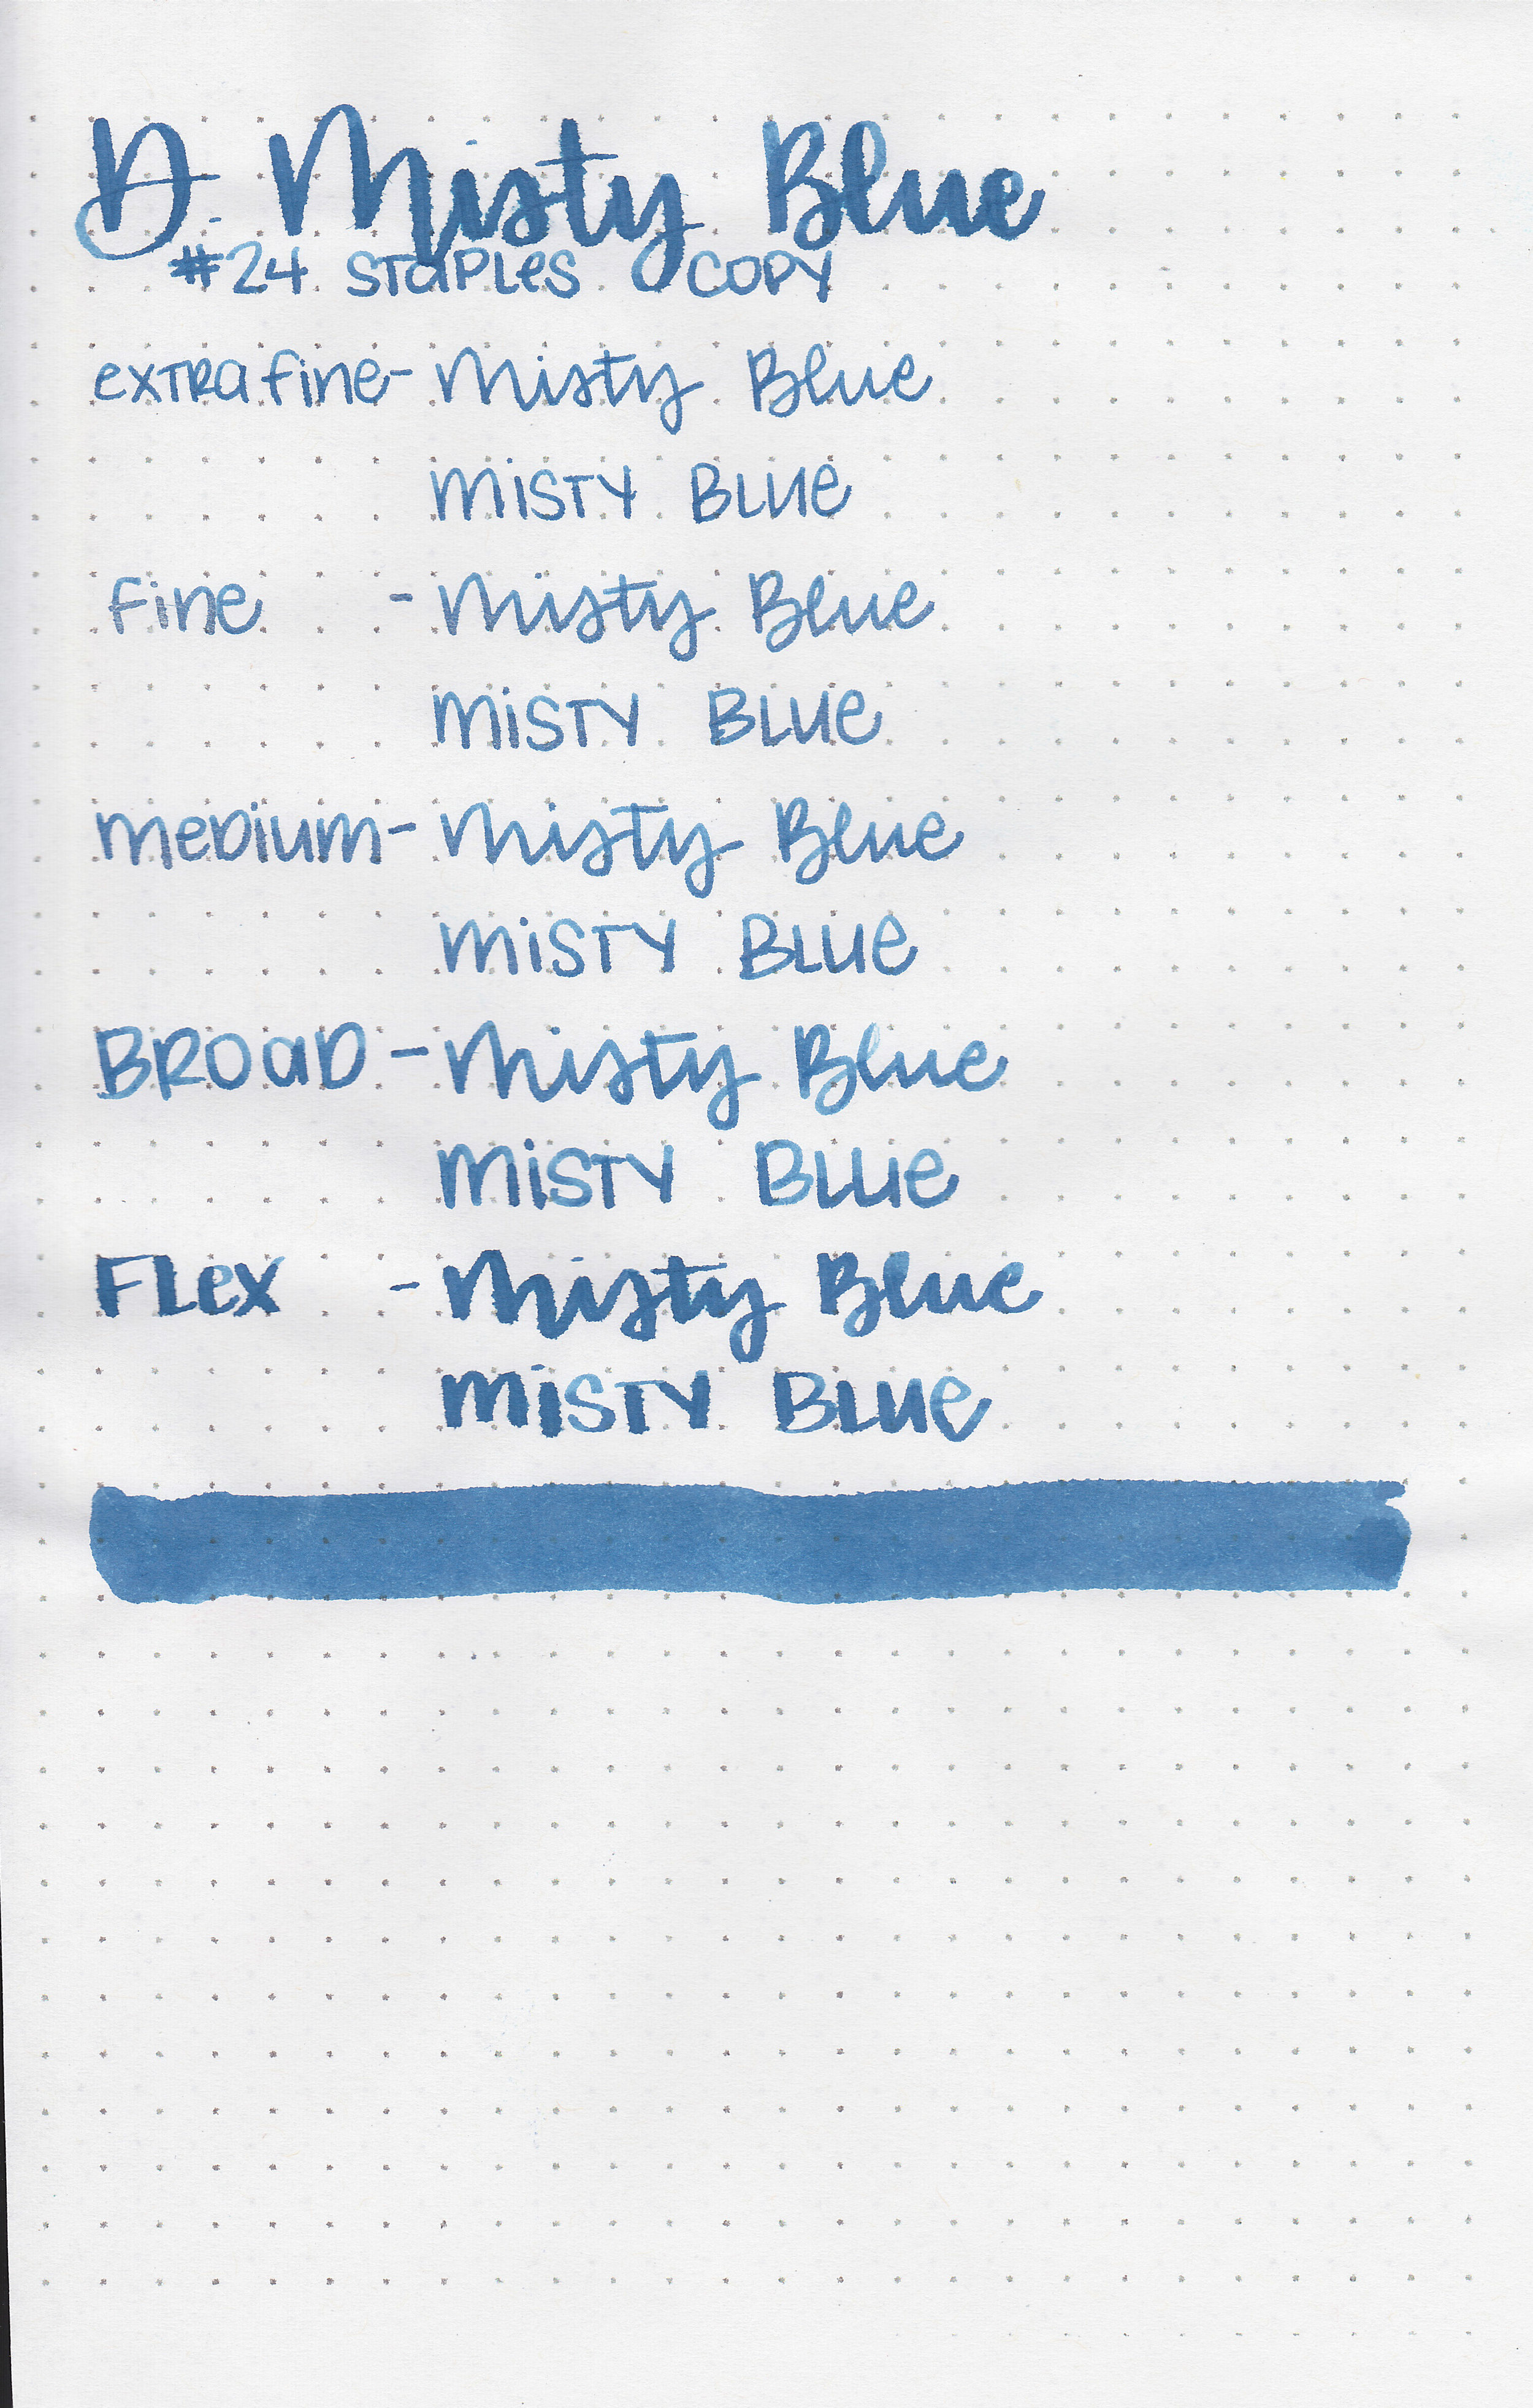 D. Misty Blue
#24 Staples Copy
extra fine - Misty Blue
Misty Blue
Fine - Misty Blue
Misty Blue
Medium - Misty Blue
Misty Blue
Broad - Misty Blue
Misty Blue
Flex - Misty Blue
Misty Blue